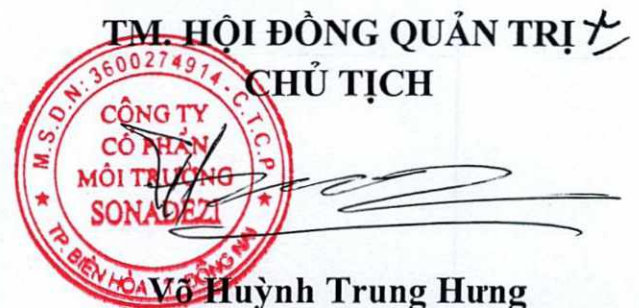 TM. HỘI ĐỒNG QUẢN TRỊ
CHỦ TỊCH
M.S.D.N: 3600274914-C.T.C.P
CÔNG TY
CỔ PHẦN
MÔI TRƯỜNG
SONADEZI
TP. BIÊN HÒA - T. ĐỒNG NAI
Võ Huỳnh Trung Hưng